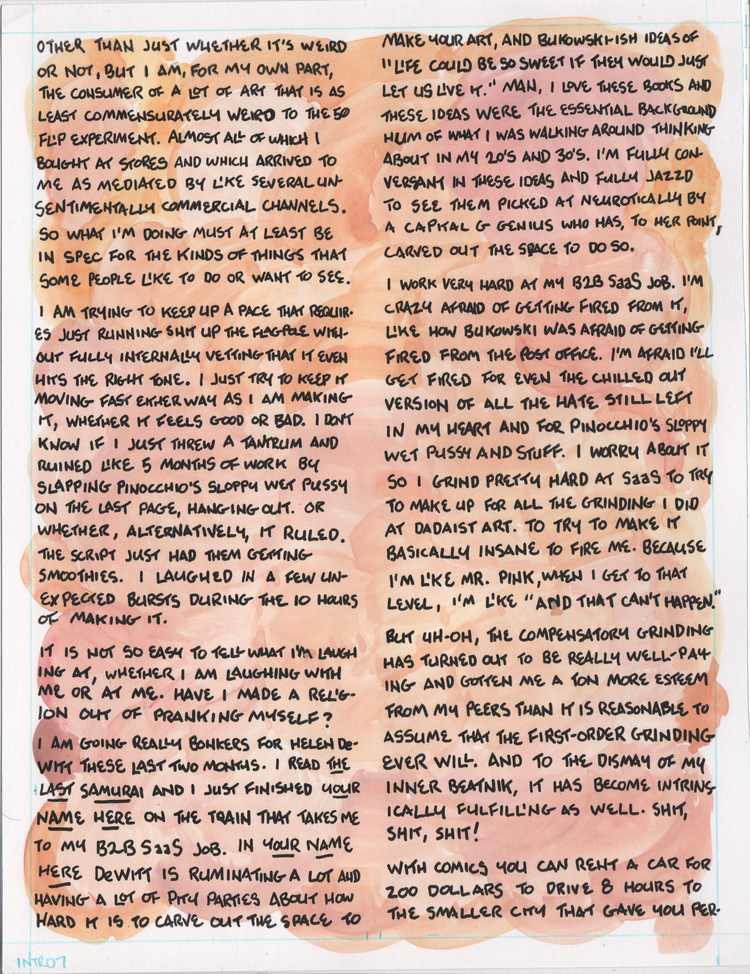 OTHER THAN JUST WHETHER IT'S WEIRD
OR NOT, BUT I AM, FOR MY OWN PART,
THE CONSUMER OF A LOT OF ART THAT IS AS
LEAST COMMENSURATELY WEIRD TO THE 50
FLIP EXPERIMENT. ALMOST ALL OF WHICH I
BOUGHT AT STORES AND WHICH ARRIVED TO
ME AS MEDIATED BY LIKE SEVERAL UN-
SENTIMENTALLY COMMERCIAL CHANNELS.
SO WHAT I'M DOING MUST AT LEAST BE
IN SPEC FOR THE KINDS OF THINGS THAT
SOME PEOPLE LIKE TO DO OR WANT TO SEE.
I AM TRYING TO KEEP UP A PACE THAT REQUIR-
ES JUST RUNNING SHIT UP THE FLAGPOLE WITH-
OUT FULLY INTERNALLY VETTING THAT IT EVEN
HITS THE RIGHT TONE. I JUST TRY TO KEEP IT
MOVING FAST EITHER WAY AS I AM MAKING
IT, WHETHER IT FEELS GOOD OR BAD. I DON'T
KNOW IF I JUST THREW A TANTRUM AND
RUINED LIKE 5 MONTHS OF WORK BY
SLAPPING PINOCCHIO'S SLOPPY WET PUSSY
ON THE LAST PAGE, HANGING OUT. OR
WHETHER, ALTERNATIVELY, IT RULED.
THE SCRIPT JUST HAD THEM GETTING
SMOOTHIES. I LAUGHED IN A FEW UN-
EXPECTED BURSTS DURING THE 10 HOURS
OF MAKING IT.
IT IS NOT SO EASY TO TELL WHAT I'M LAUGH
ING AT, WHETHER I AM LAUGHING WITH
ME OR AT ME. HAVE I MADE A RELIG-
ION OUT OF PRANKING MYSELF?
I AM GOING REALLY BONKERS FOR HELEN DE-
WITT THESE LAST TWO MONTHS. I READ THE
LAST SAMURAI AND I JUST FINISHED YOUR
NAME HERE ON THE TRAIN THAT TAKES ME
TO MY B2B SaaS JOB. IN YOUR NAME
HERE DEWITT IS RUMINATING A LOT AND
HAVING A LOT OF PITY PARTIES ABOUT HOW
HARD IT IS TO CARVE OUT THE SPACE TO
MAKE YOUR ART, AND BUKOWSKI-ISH IDEAS OF
"LIFE COULD BE SO SWEET IF THEY WOULD JUST
LET US LIVE IT." MAN, I LOVE THESE BOOKS AND
THESE IDEAS WERE THE ESSENTIAL BACKGROUND
HUM OF WHAT I WAS WALKING AROUND THINKING
ABOUT IN MY 20'S AND 30'S. I'M FULLY CON-
VERSANT IN THESE IDEAS AND FULLY JAZZD
TO SEE THEM PICKED AT NEUROTICALLY BY
A CAPITAL G GENIUS WHO HAS, TO HER POINT,
CARVED OUT THE SPACE TO DO SO.
I WORK VERY HARD AT MY B2B SaaS JOB. I'M
CRAZY AFRAID OF GETTING FIRED FROM IT,
LIKE HOW BUKOWSKI WAS AFRAID OF GETTING
FIRED FROM THE POST OFFICE. I'M AFRAID I'LL
GET FIRED FOR EVEN THE CHILLED OUT
VERSION OF ALL THE HATE STILL LEFT
IN MY HEART AND FOR PINOCCHIO'S SLOPPY
WET PUSSY AND STUFF. I WORRY ABOUT IT
SO I GRIND PRETTY HARD AT SaaS TO TRY
TO MAKE UP FOR ALL THE GRINDING I DID
AT DADAIST ART. TO TRY TO MAKE IT
BASICALLY INSANE TO FIRE ME. BECAUSE
I'M LIKE MR. PINK, WHEN I GET TO THAT
LEVEL, I'M LIKE "AND THAT CAN'T HAPPEN."
BUT UH-OH, THE COMPENSATORY GRINDING
HAS TURNED OUT TO BE REALLY WELL-PAY-
ING AND GOTTEN ME A TON MORE ESTEEM
FROM MY PEERS THAN IT IS REASONABLE TO
ASSUME THAT THE FIRST-ORDER GRINDING
EVER WILL. AND TO THE DISMAY OF MY
INNER BEATNIK, IT HAS BECOME INTRINS
ICALLY FULFILLING AS WELL. SHIT,
SHIT, SHIT!
WITH COMICS YOU CAN RENT A CAR FOR
200 DOLLARS TO DRIVE 8 HOURS TO
THE SMALLER CITY THAT GAVE YOU PER-
INTRO7